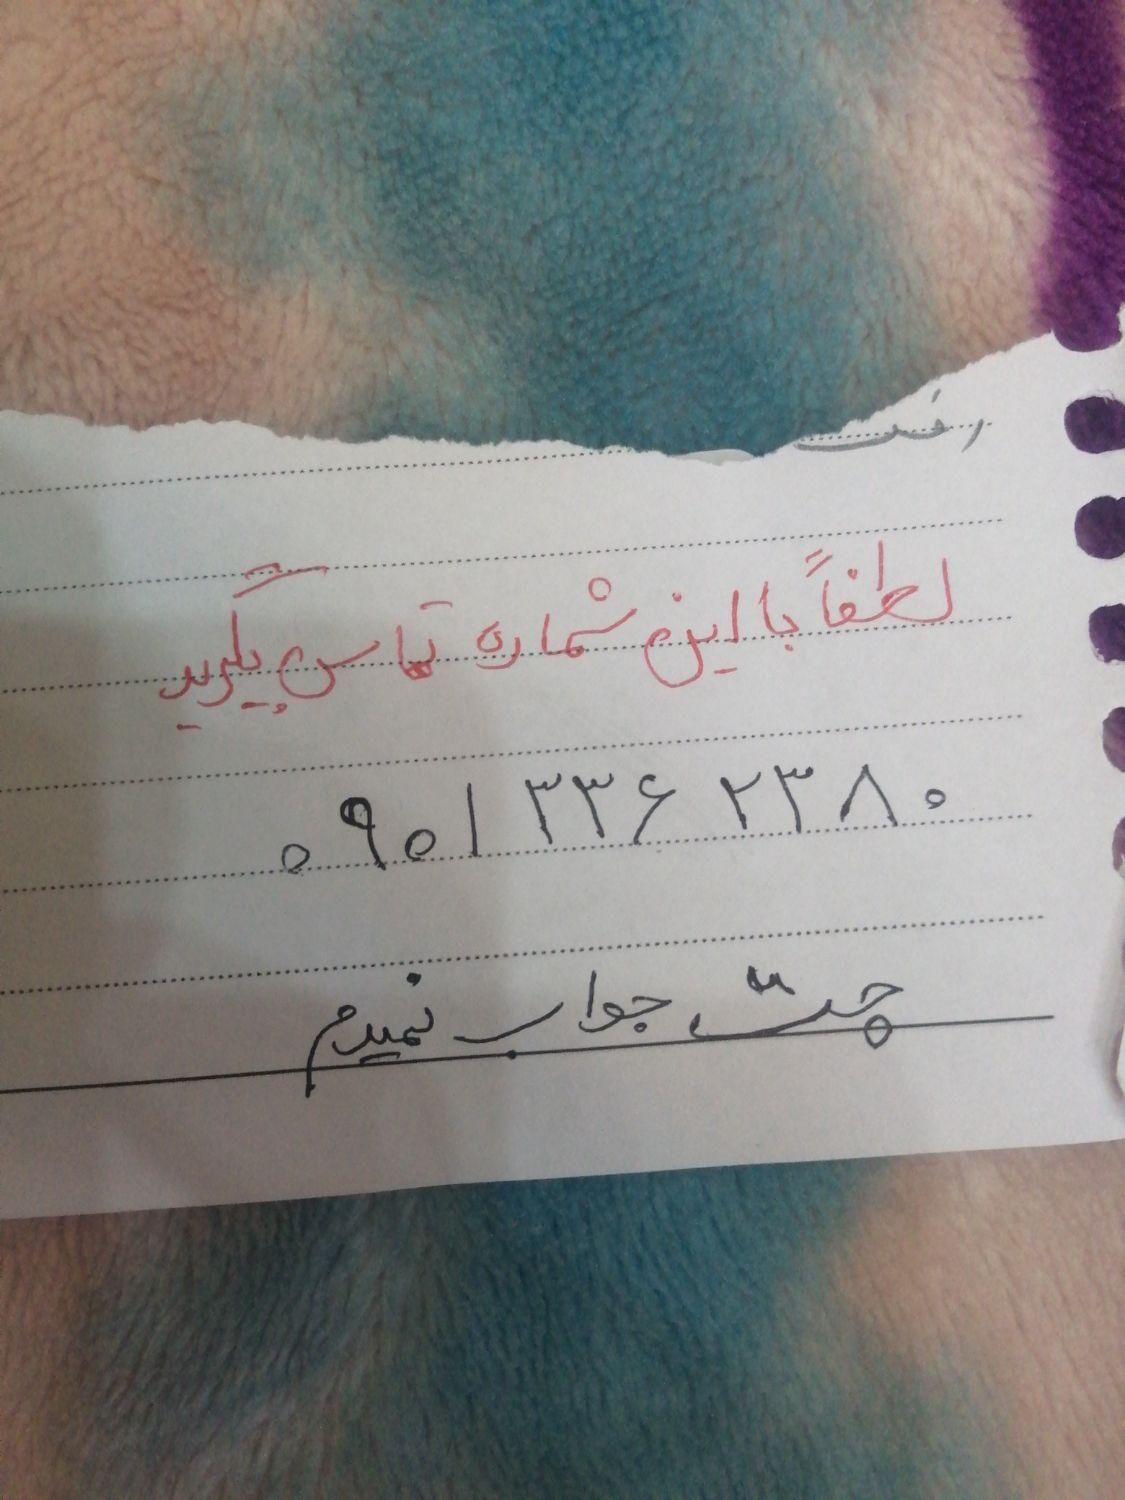 لطفاً با این شماره تماس بگیرید
۰۹۰۱ ۳۳۶ ۲۳۸۰
چت جواب نمیدم